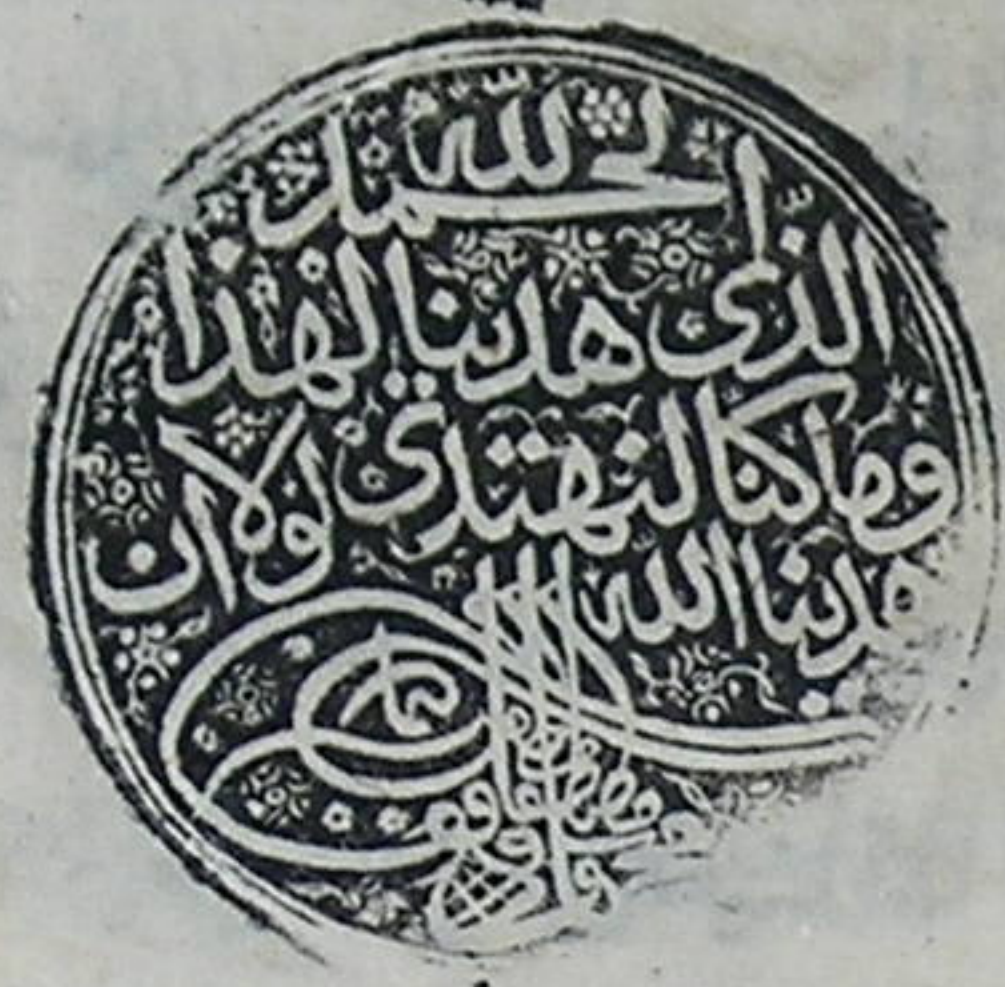 الحمد لله
الذّى هدينا لهذا
وما كنّا لنهتدى لولا ان
هدينا الله